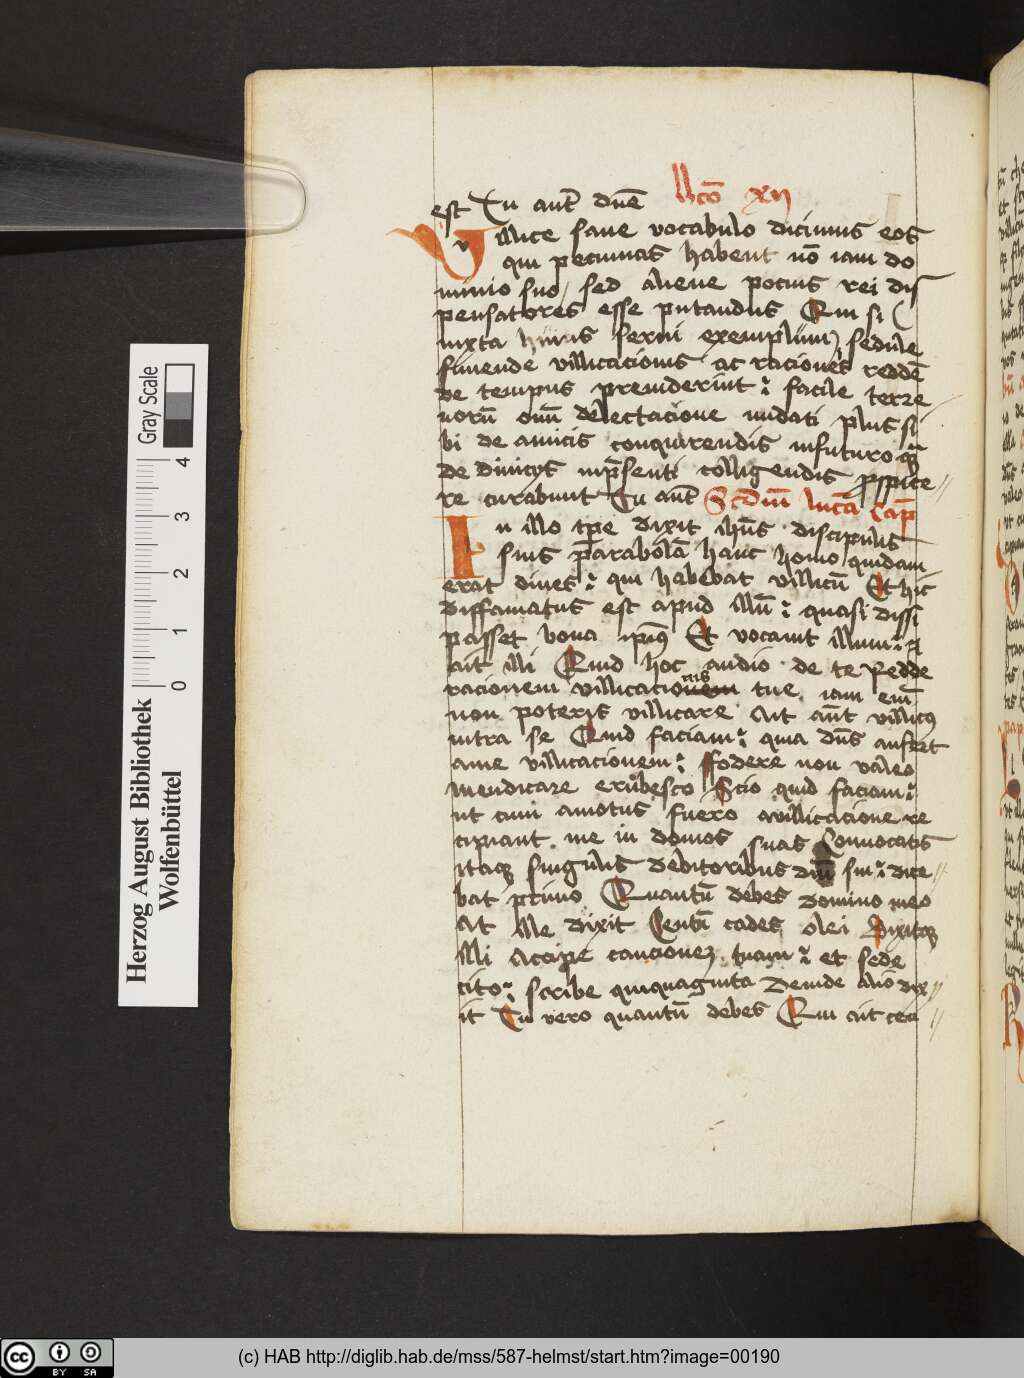 est Tu autē dnē lc̄o xij
Villice sane vocabulo dicimus eos
qui pecunias habent nō iam do
minio suo sed aliene pocius rei dis
pensatores esse putandus Qui si
iuxta huius serui exemplum sedule
finiende villicacionis ac raciones reddē
de tempus preuiderint facile terre
norū om̄i delectacione nudati plus si
bi de amicis conquirendis in futuro q̄
de diuicijs in p̄senti colligendis prospice
re curabunt Tu aūt Scd̄m lucā Cap̄
In illo tp̄e dixit ihūs discipulis
suis parabolā hanc homo quidam
erat diues qui habebat villicū Et hic
diffamatus est apud illū quasi dissi
passet bona ipsius Et vocauit illum et
ait illi Quid hoc audio de te Redde
racionem villicacionem nis tue iam em̄
non poteris villicare Ait aūt villicus
intra se Quid faciam quia dn̄s aufert
a me villicacionem ffodere non valeo
mendicare erubesco Scio quid faciam
ut cum amotus fuero a villicacione re
cipiant me in domos suas Conuocatis
itaq singulis debitoribus dn̄i sui dice
bat primo Quantū debes domino meo
At ille dixit Centū cados olei Dixitq
illi Accipe caucionem tuam et sede
cito scribe quinquaginta Deinde alio dix
it Tu vero quantū debes Qui ait cen
Herzog August Bibliothek
Wolfenbüttel
Gray Scale
0 1 2 3 4
cc BY SA
(c) HAB http://diglib.hab.de/mss/587-helmst/start.htm?image=00190